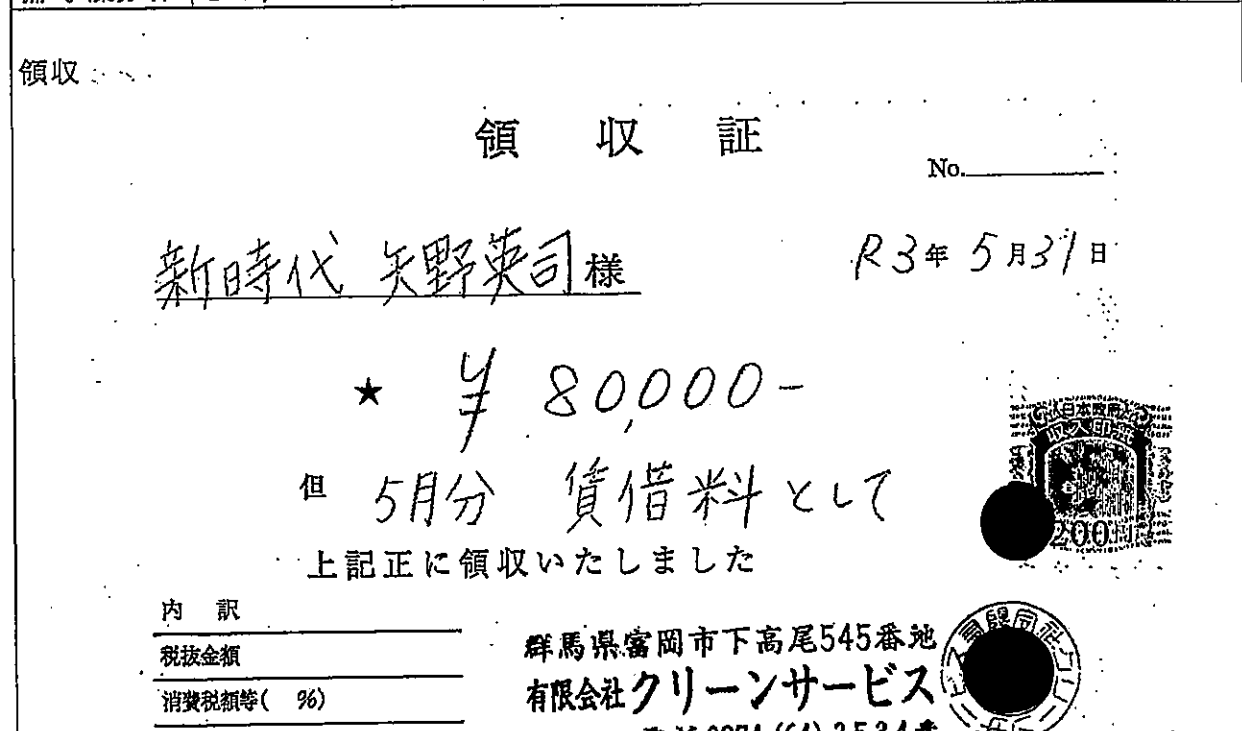 領収
領 収 証
No.
新時代 矢野英司様
R3年 5月31日
★ ¥ 80,000-
但 5月分 賃借料として
上記正に領収いたしました
日本政府
収入印紙
200円
内 訳
税抜金額
消費税額等( %)
群馬県富岡市下高尾545番地
有限会社クリーンサービス